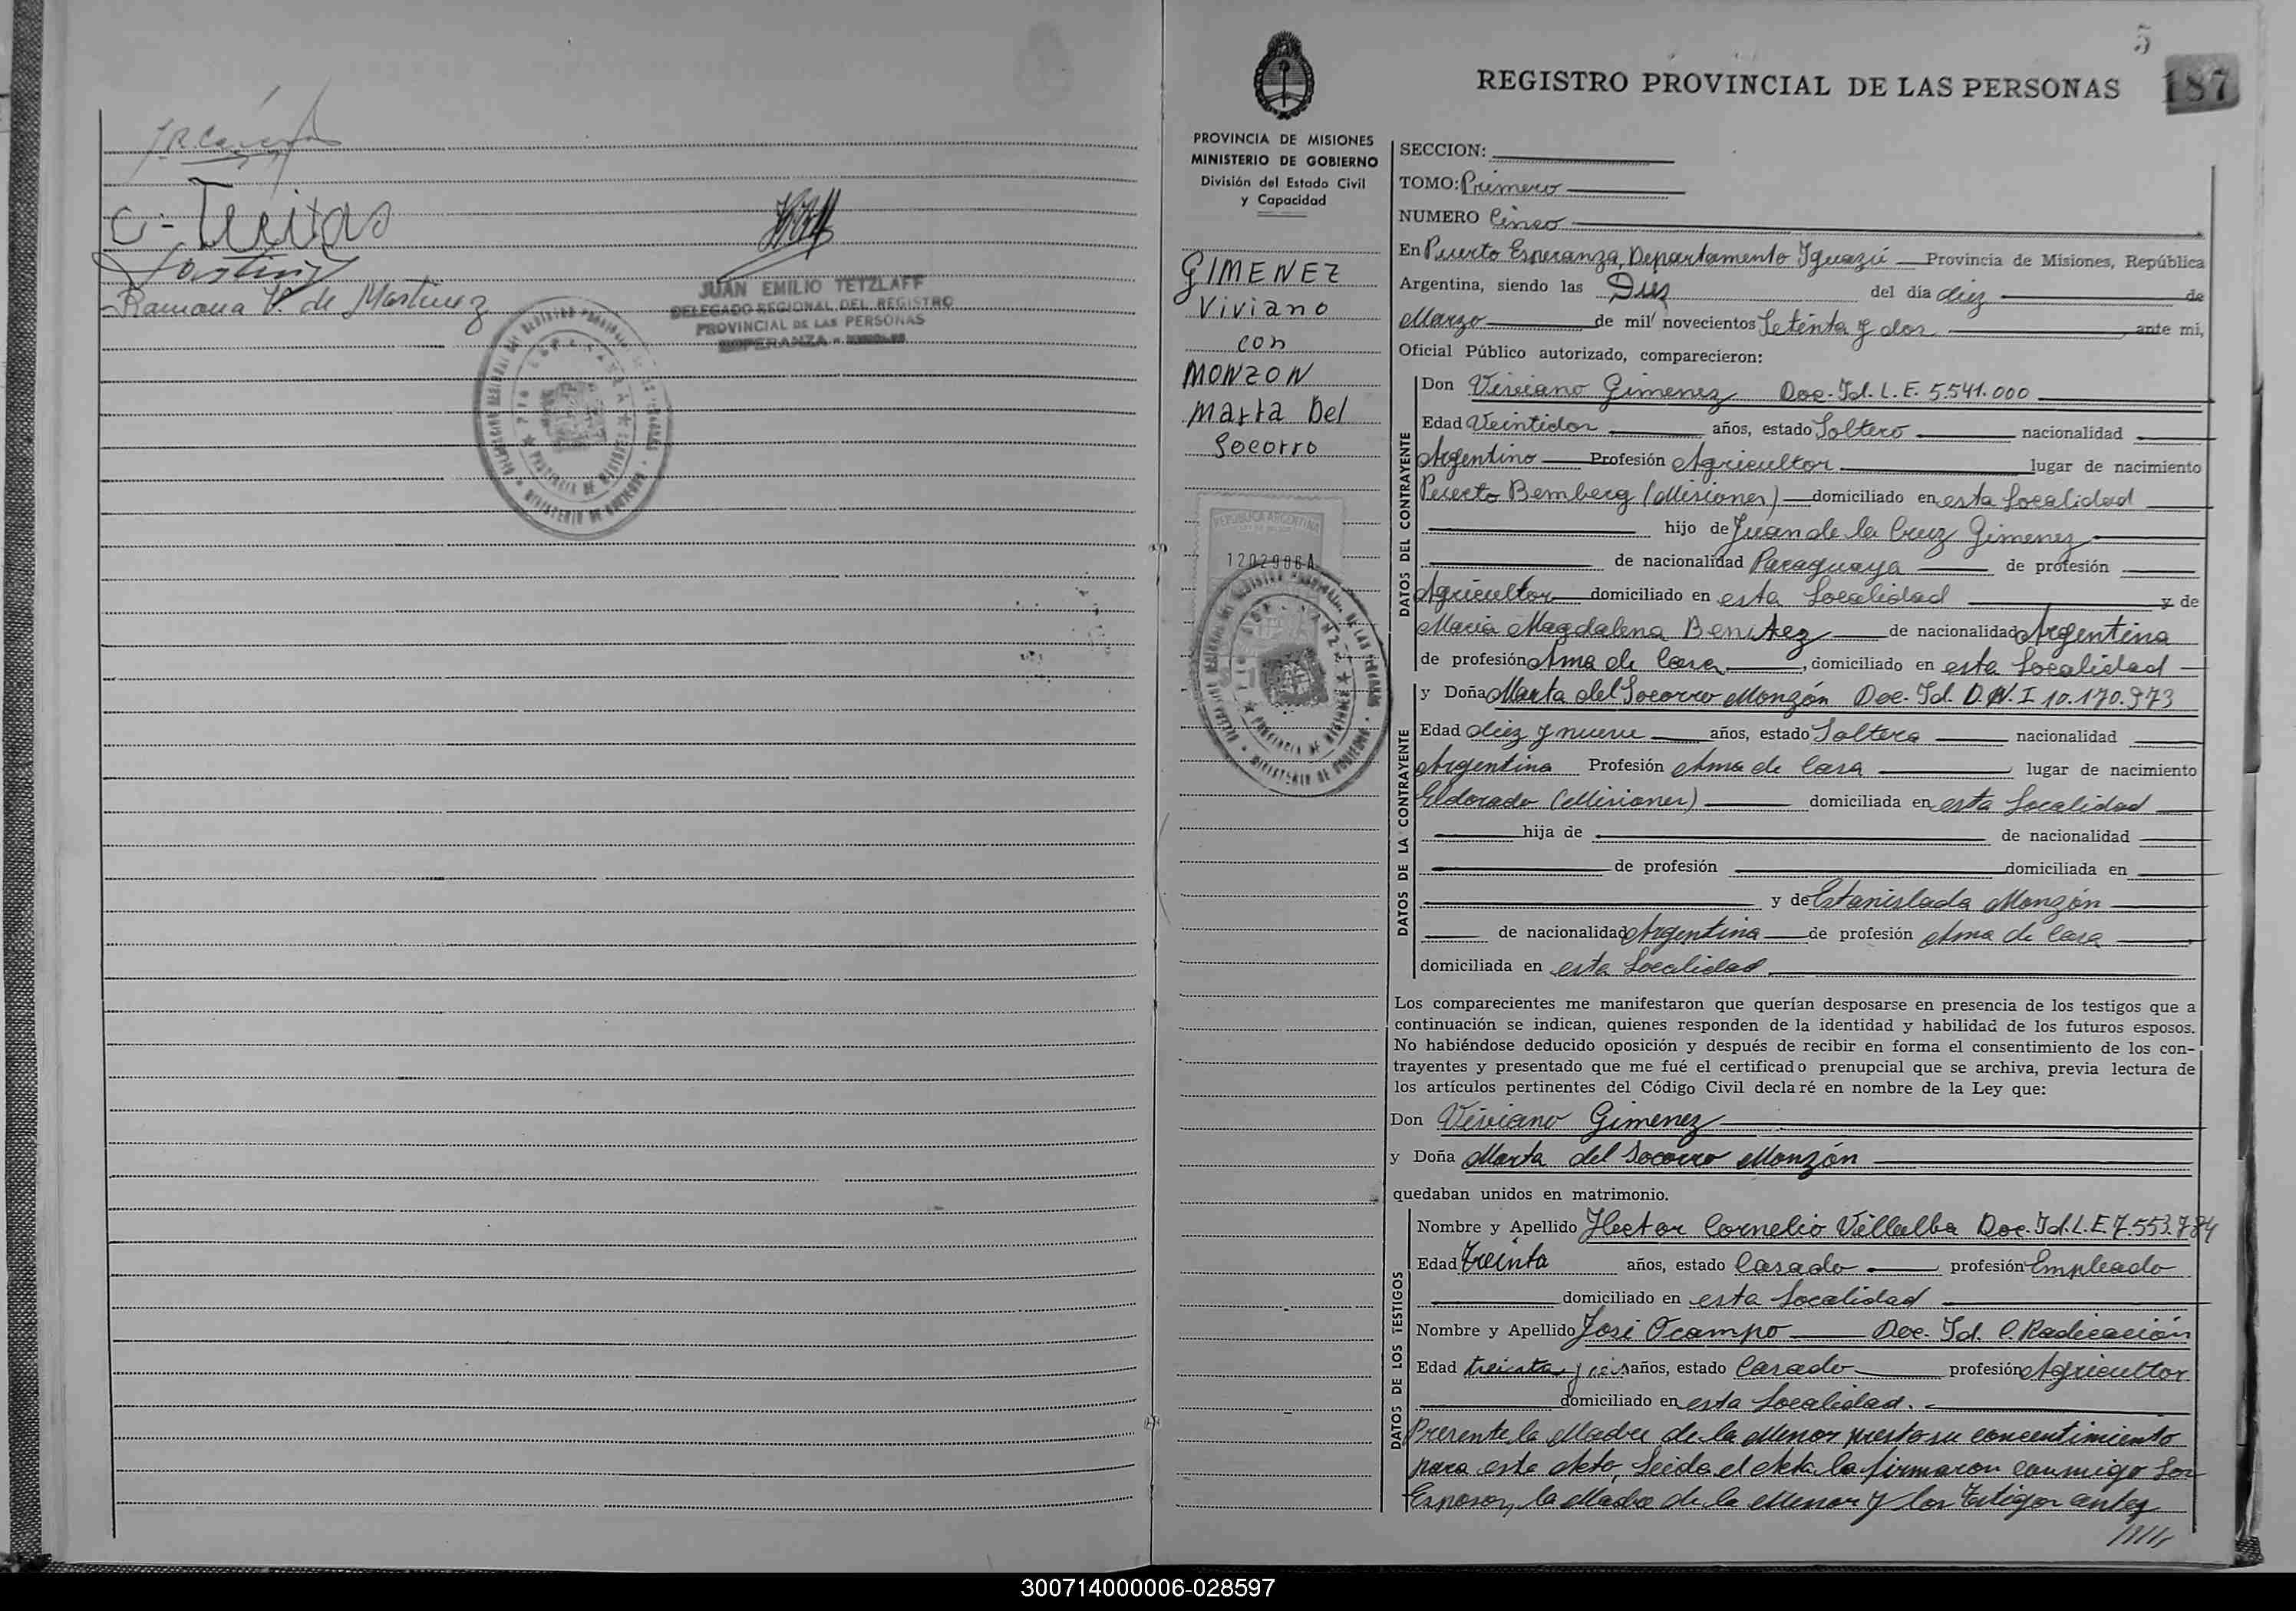 C. Freitas
Ramona V. de Martinez
JUAN EMILIO TETZLAFF
DELEGADO REGIONAL DEL REGISTRO
PROVINCIAL DE LAS PERSONAS
5
187
REGISTRO PROVINCIAL DE LAS PERSONAS
PROVINCIA DE MISIONES
MINISTERIO DE GOBIERNO
División del Estado Civil
y Capacidad
GIMENEZ
Viviano
con
MONZON
Marta Del
Socorro
REPUBLICA ARGENTINA
1202906A
SECCION:
TOMO: Primero
NUMERO Cinco
En Puerto Esperanza, Departamento Iguazú Provincia de Misiones, República
Argentina, siendo las Diez del día diez de
Marzo de mil novecientos Setenta y dos ante mi,
Oficial Público autorizado, comparecieron:
DATOS DEL CONTRAYENTE
Don Viviano Gimenez Doc. Id. L. E. 5.541.000
Edad Veintidos años, estado Soltero nacionalidad
Argentino Profesión Agricultor lugar de nacimiento
Puerto Bemberg (Misiones) domiciliado en esta Localidad
hijo de Juan de la Cruz Gimenez
de nacionalidad Paraguaya de profesión
Agricultor domiciliado en esta Localidad y de
Maria Magdalena Benitez de nacionalidad Argentina
de profesión Ama de Casa, domiciliado en esta Localidad
DATOS DE LA CONTRAYENTE
y Doña Marta del Socorro Monzón Doc. Id. D.N.I 10.170.973
Edad diez y nueve años, estado Soltera nacionalidad
Argentina Profesión Ama de Casa lugar de nacimiento
Eldorado (Misiones) domiciliada en esta Localidad
hija de de nacionalidad
de profesión domiciliada en
y de Estanislada Monzón
de nacionalidad Argentina de profesión Ama de Casa
domiciliada en esta Localidad
Los comparecientes me manifestaron que querían desposarse en presencia de los testigos que a
continuación se indican, quienes responden de la identidad y habilidad de los futuros esposos.
No habiéndose deducido oposición y después de recibir en forma el consentimiento de los con-
trayentes y presentado que me fué el certificado prenupcial que se archiva, previa lectura de
los artículos pertinentes del Código Civil declaré en nombre de la Ley que:
Don Viviano Gimenez
y Doña Marta del Socorro Monzón
quedaban unidos en matrimonio.
DATOS DE LOS TESTIGOS
Nombre y Apellido Hector Cornelio Villalba Doc. Id. L.E. 7.553.784
Edad treinta años, estado Casado profesión Empleado
domiciliado en esta Localidad
Nombre y Apellido José Ocampo Doc. Id. C. Radicación
Edad treinta y años, estado Casado profesión Agricultor
domiciliado en esta Localidad.
Presente la Madre de la Menor presto su concentimiento
para este Acto, Leida el Acta la firmaron conmigo Los
Esposos, la Madre de la Menor y los testigos antes
300714000006-028597